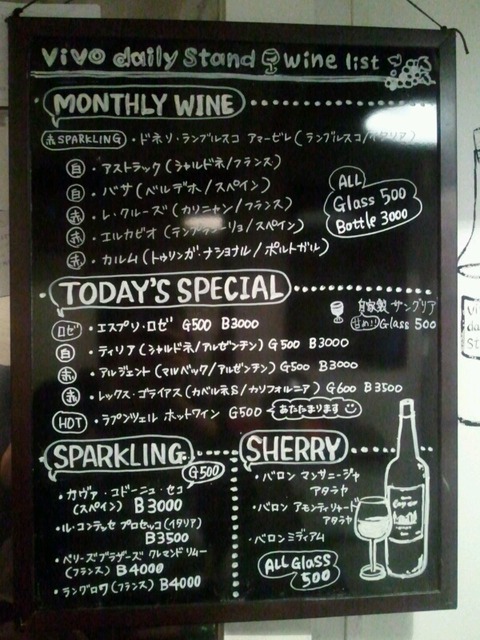 ViVO daily Stand wine list
MONTHLY WINE
赤SPARKLING ・ドネリ・ランブルスコ アマービレ (ランブルスコ/イタリア)
白 ・アストラック (シャルドネ/フランス)
白 ・バサ (ベルデオ/スペイン)
赤 ・レ・クルーズ (カリニャン/フランス)
赤 ・エルカビオ (テンプラニーリョ/スペイン)
赤 ・カルム (トゥリンガ・ナショナル/ポルトガル)
ALL
Glass 500
Bottle 3000
TODAY'S SPECIAL
自家製 サングリア
甘め!! Glass 500
ロゼ ・エスプリ・ロゼ G500 B3000
白 ・ティリア (シャルドネ/アルゼンチン) G500 B3000
赤 ・アルジェント (マルベック/アルゼンチン) G500 B3000
赤 ・レックス・ゴライアス (カベルネS/カリフォルニア) G600 B3500
HOT ・ラプンツェル ホットワイン G500 あたたまります
SPARKLING
G500
・カヴァ・コドーニュ・セコ
(スペイン) B3000
・ル・コンテッセ プロセッコ (イタリア)
B3500
・ベリーズブラザーズ クレマンド リムー
(フランス) B4000
・ラングロワ (フランス) B4000
SHERRY
・バロン マンサニージャ
アタラヤ
・バロン アモンティリャード
アタラヤ
・バロン ミディアム
ALL Glass
500